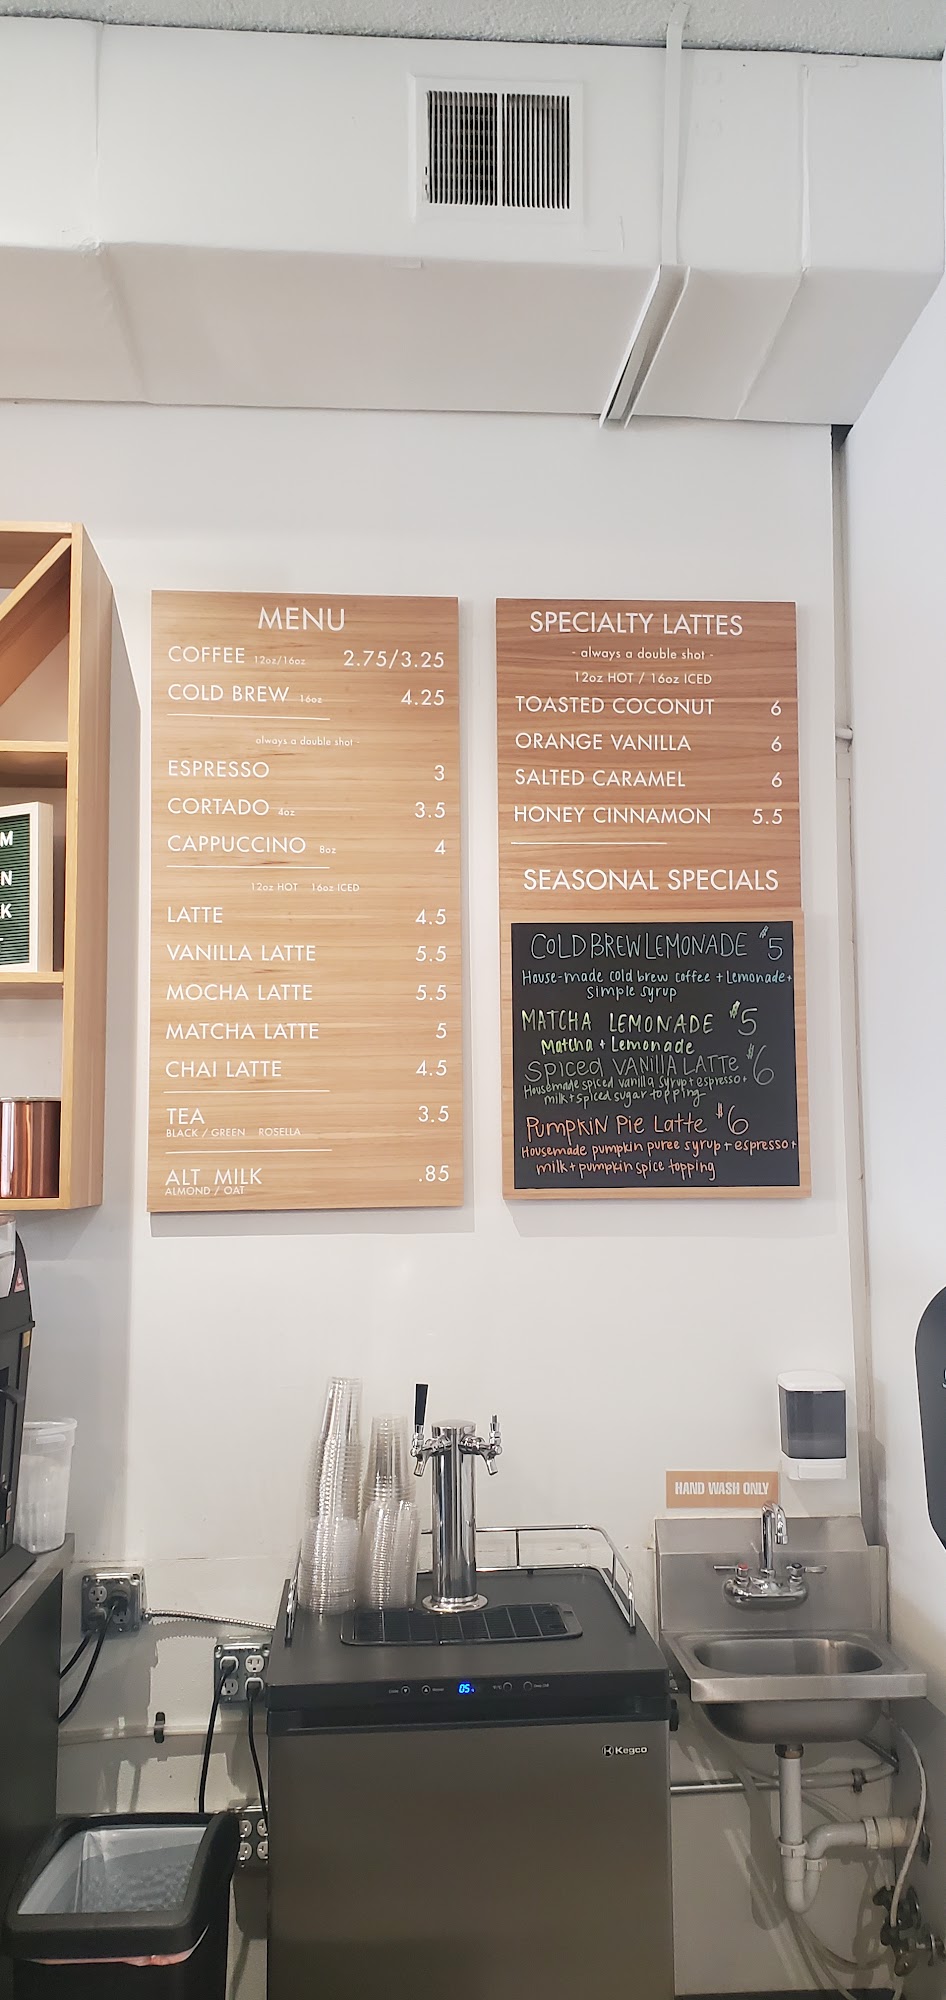 MENU
COFFEE 12oz/16oz 2.75/3.25
COLD BREW 16oz 4.25
always a double shot -
ESPRESSO 3
CORTADO 4oz 3.5
CAPPUCCINO 8oz 4
12oz HOT 16oz ICED
LATTE 4.5
VANILLA LATTE 5.5
MOCHA LATTE 5.5
MATCHA LATTE 5
CHAI LATTE 4.5
TEA 3.5
BLACK / GREEN ROSELLA
ALT MILK .85
ALMOND / OAT
SPECIALTY LATTES
- always a double shot -
12oz HOT / 16oz ICED
TOASTED COCONUT 6
ORANGE VANILLA 6
SALTED CARAMEL 6
HONEY CINNAMON 5.5
SEASONAL SPECIALS
COLD BREW LEMONADE $5
House-made cold brew coffee + Lemonade +
simple syrup
MATCHA LEMONADE $5
Matcha + Lemonade
SPICED VANILLA LATTE $6
Housemade spiced vanilla syrup + espresso +
milk + spiced sugar topping
PUMPKIN PIE LATTE $6
Housemade pumpkin puree syrup + espresso +
milk + pumpkin spice topping
M
N
K
HAND WASH ONLY
05
Kegco